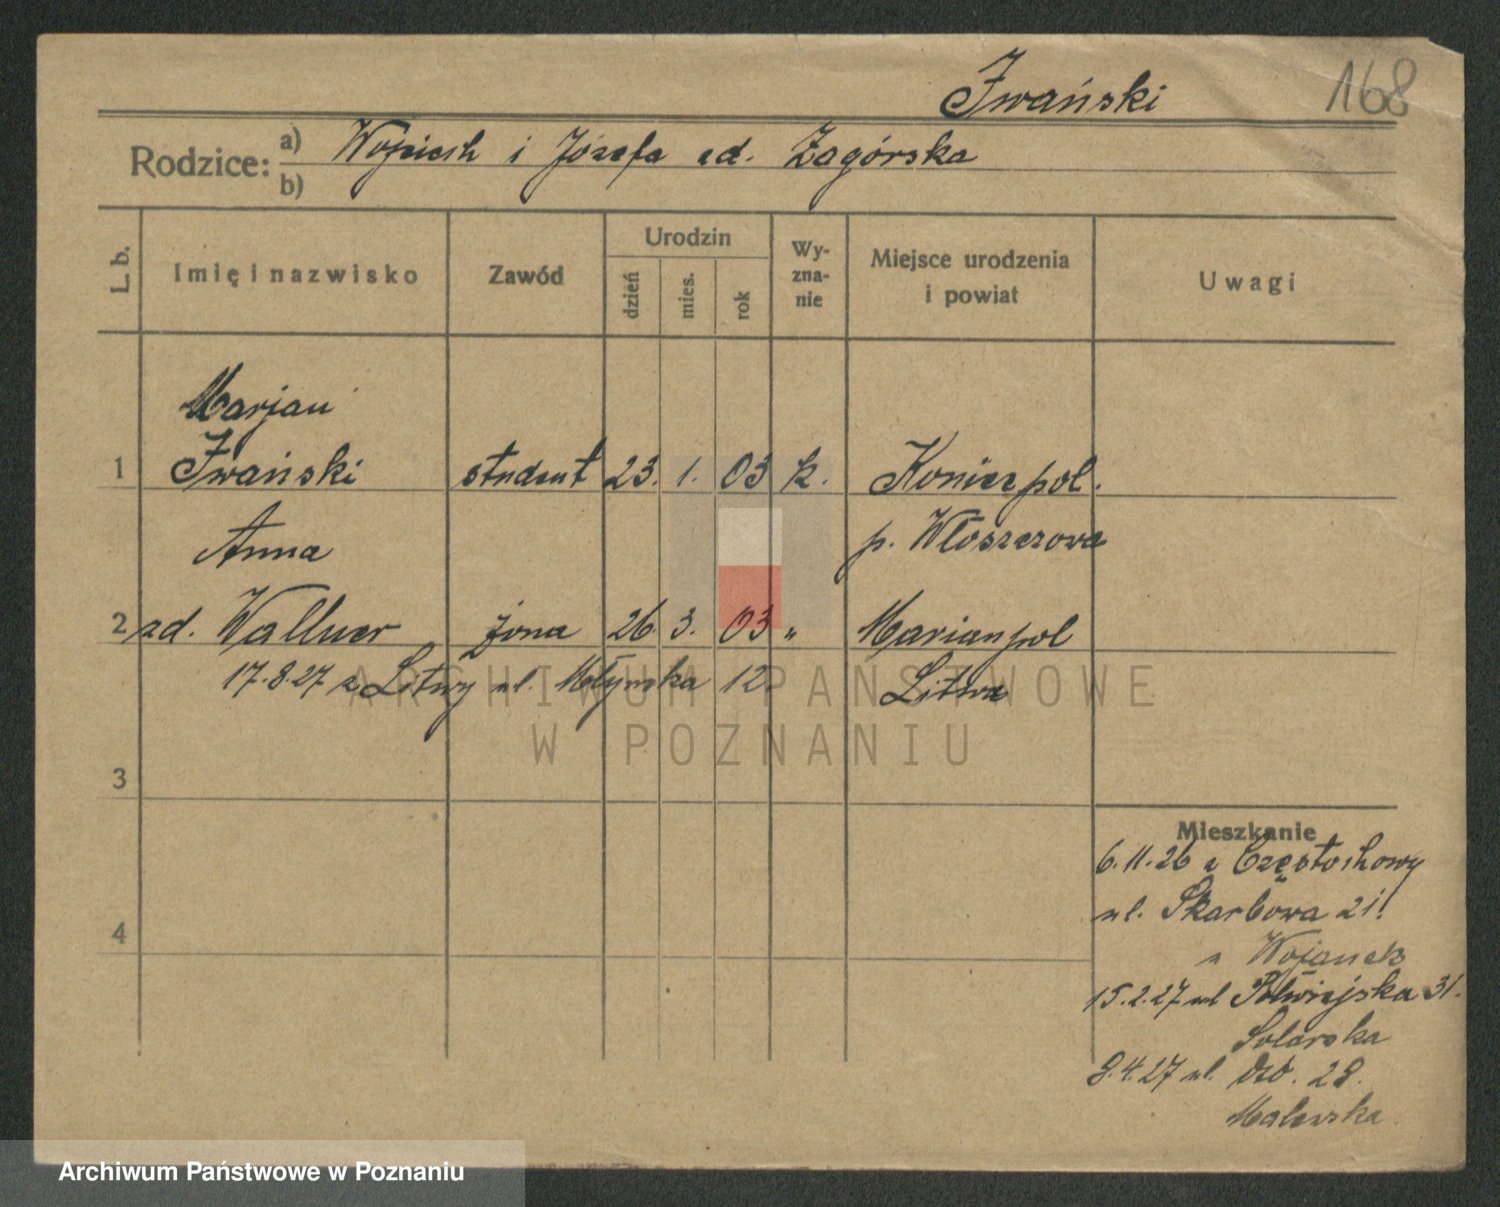 Iwański 168
Rodzice: a) Wojciech i Józefa zd. Zagórska
b)
L. b. Imię i nazwisko Zawód Urodzin dzień mies. rok Wyznanie Miejsce urodzenia i powiat Uwagi
Marjan
1 Iwański student 23. 1. 03 k. Koniecpol.
Anna p. Włoszczowa
2 zd. Wallner żona 26. 3. 03 „ Marianpol
17.8.27 z Litwy ul. Młyńska 12. Litwa
ARCHIWUM PAŃSTWOWE
W POZNANIU
3
Mieszkanie
6.11.26 z Częstochowy
ul. Skarbowa 21.
4
u Wojanek
15.2.27 ul Półwiejska 31.
Solarska
8.4.27 ul. 28.
Malewska
Archiwum Państwowe w Poznaniu